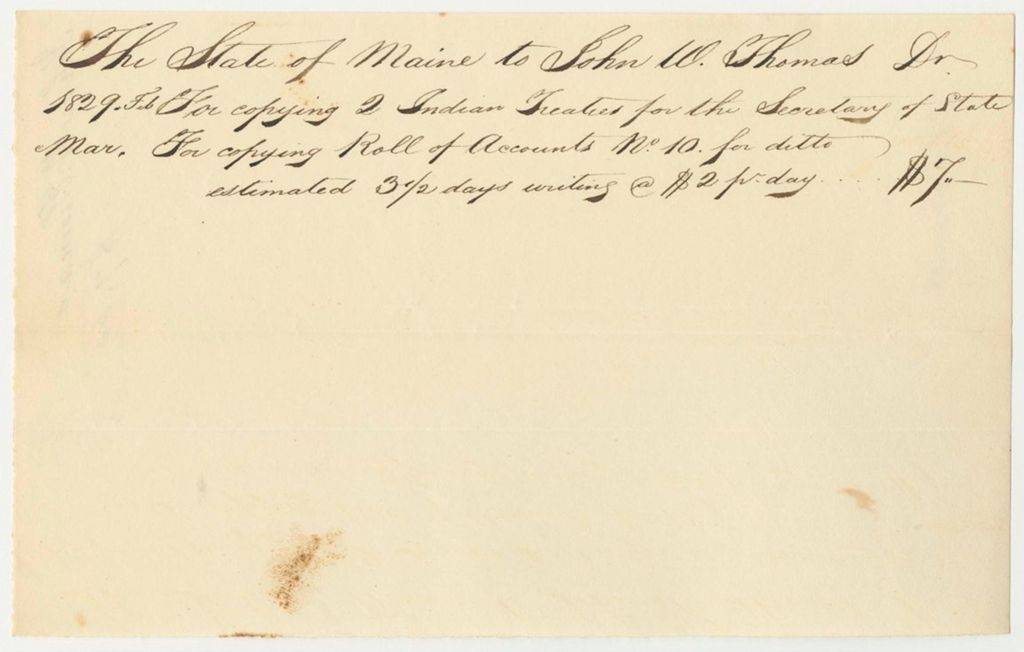 The State of Maine to John W. Thomas Dr.
1829. Feb For copying 2 Indian Treaties for the Secretary of State
Mar. For copying Roll of Accounts No. 10. for ditto
estimated 3 1/2 days writing @ $2 pr. day .... $7.—